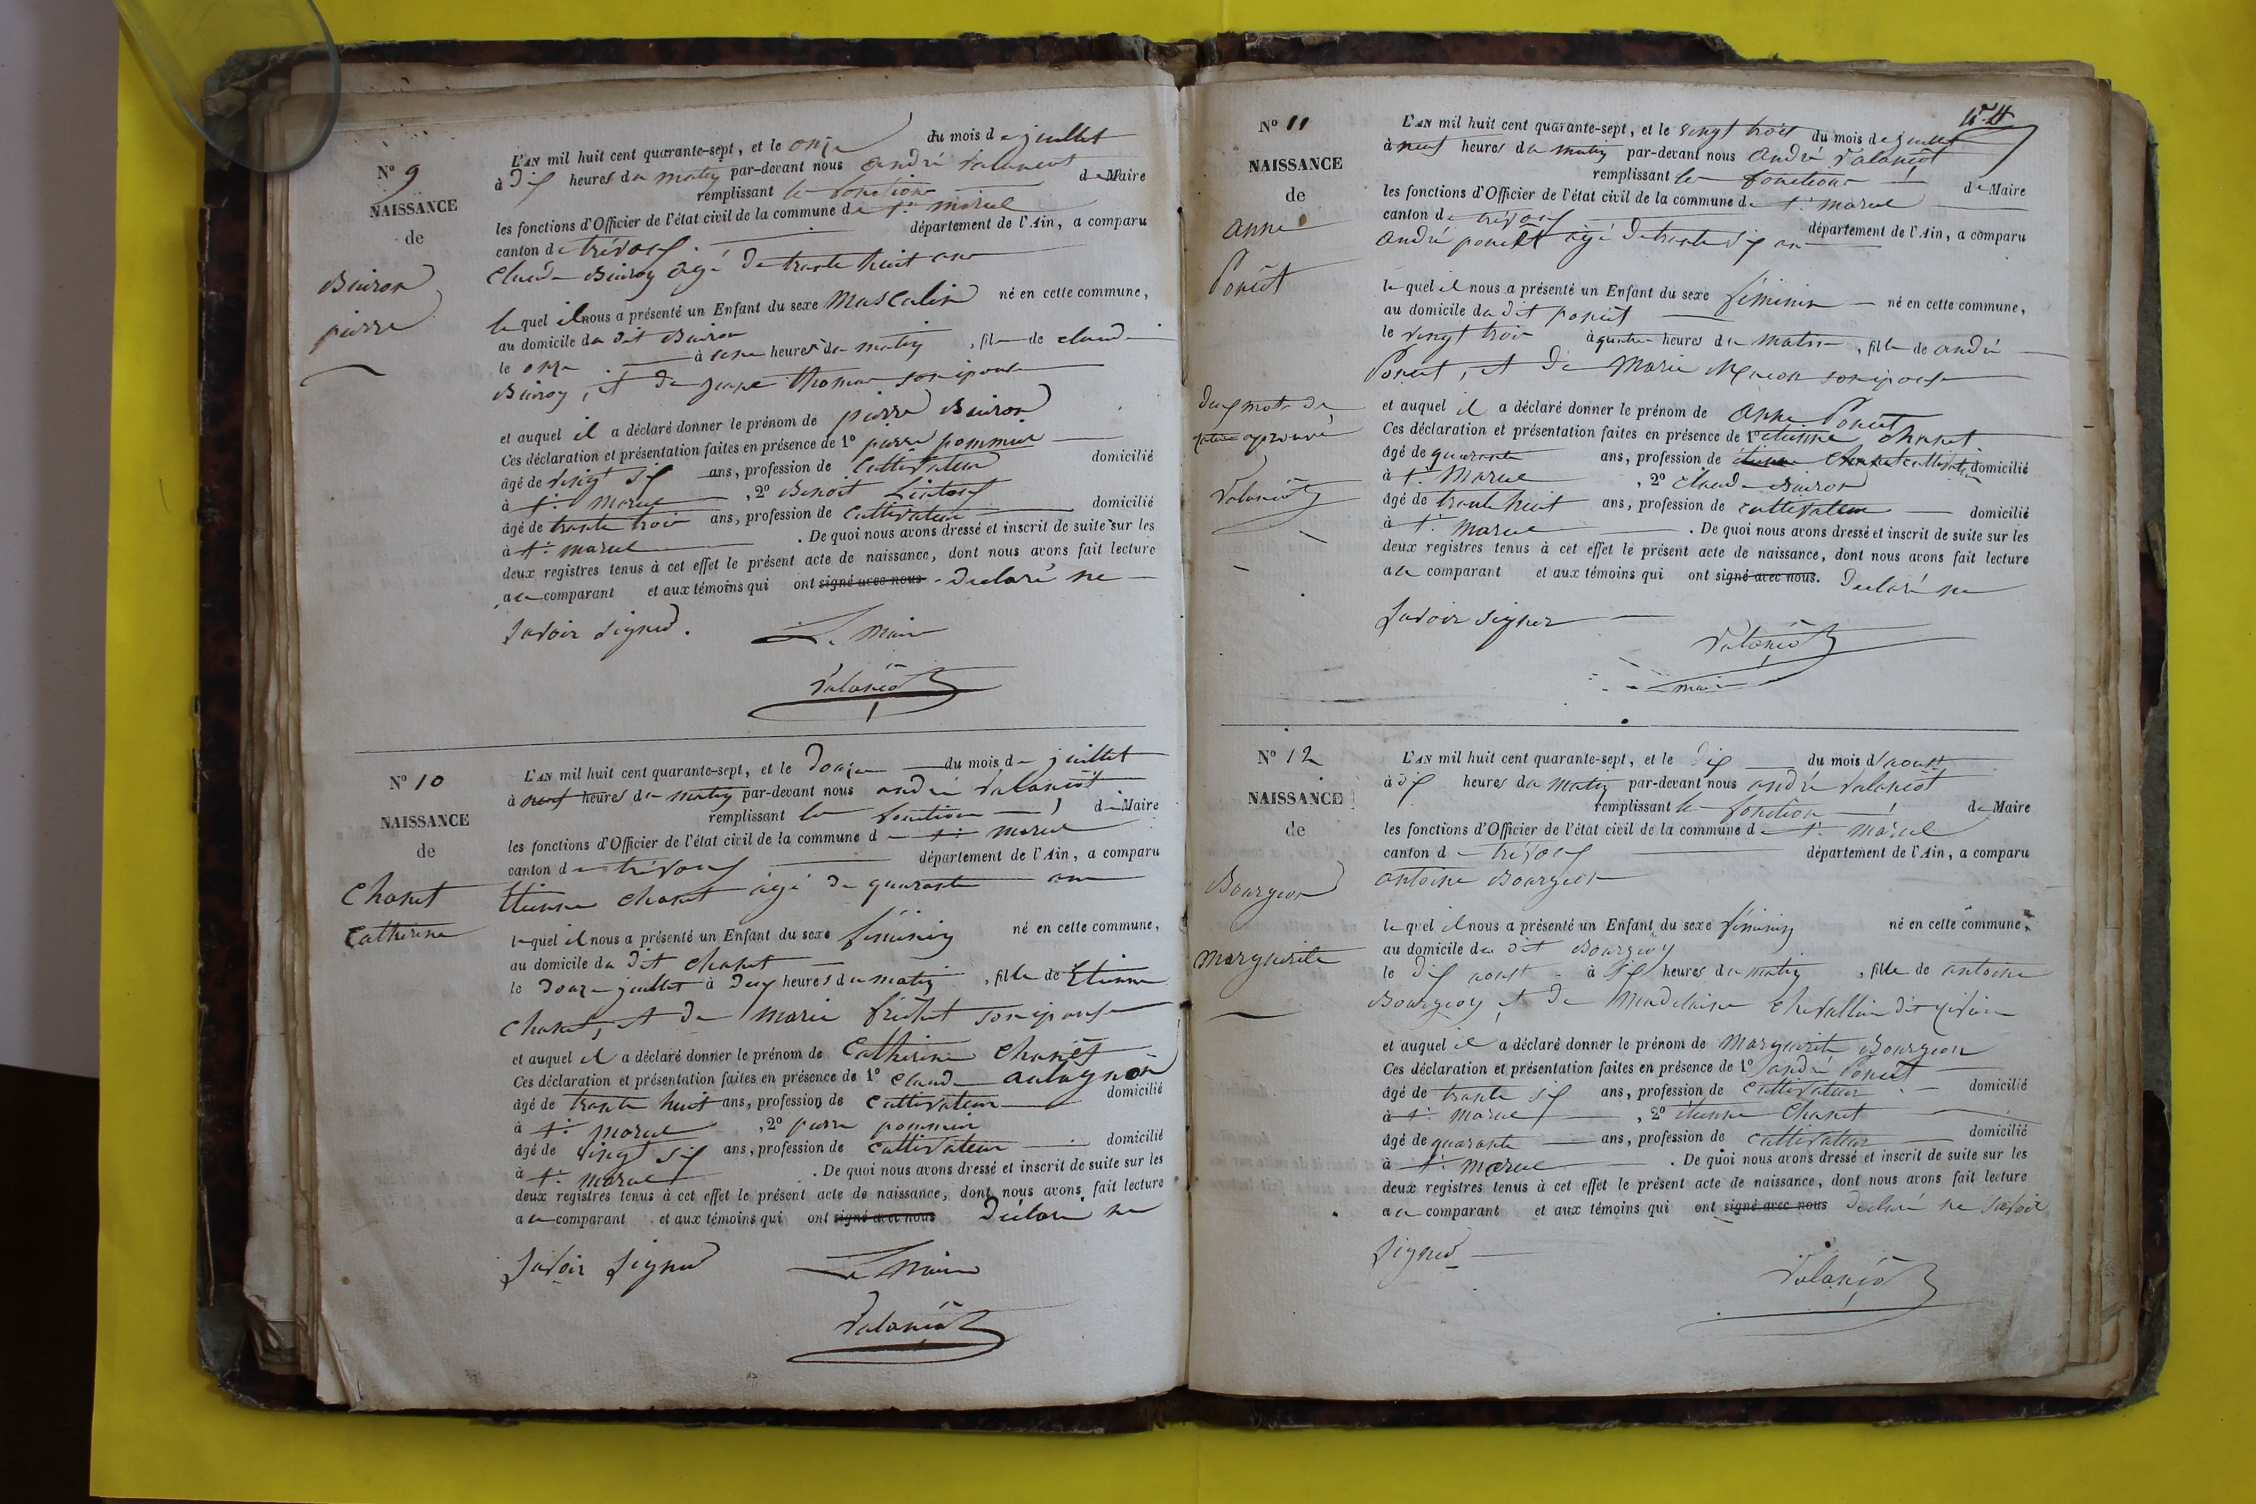 Nº 9
NAISSANCE
de
Buiron
pierre
L'AN mil huit cent quarante-sept, et le onze du mois de juillet
à dix heures du matin par-devant nous andré valanciot
remplissant les fonctions de Maire
les fonctions d'Officier de l'état civil de la commune de St. marcel
canton de trévoux département de l'Ain, a comparu
Claude Buiron âgé de trante huit ans
lequel il nous a présenté un Enfant du sexe Mascalin né en cette commune,
au domicile du dit Buiron
le onze à une heures du matin, fils de claude
Buiron, et de jeanne thomas son épouse
et auquel il a déclaré donner le prénom de pierre Buiron
Ces déclaration et présentation faites en présence de 1º pierre pommier
âgé de vingt six ans, profession de Cultivateur domicilié
à St. marcel, 2º Benoit
âgé de trante trois ans, profession de Cultivateur domicilié
à St. marcel. De quoi nous avons dressé et inscrit de suite sur les
deux registres tenus à cet effet le présent acte de naissance, dont nous avons fait lecture
au comparant et aux témoins qui ont signé avec nous déclaré ne
savoir signer.
Le Maire
Valanciot
Nº 10
NAISSANCE
de
Chanet
Catherine
L'AN mil huit cent quarante-sept, et le douze du mois de juillet
à neuf heures du matin par-devant nous andré valanciot
remplissant les fonctions de Maire
les fonctions d'Officier de l'état civil de la commune de St. marcel
canton de trévoux département de l'Ain, a comparu
Etienne chanet âgé de quarante ans
lequel il nous a présenté un Enfant du sexe féminin né en cette commune,
au domicile du dit chanet
le douze juillet à deux heures du matin, fille de Etienne
Chanet, et de marie son épouse
et auquel il a déclaré donner le prénom de Catherine Chanet
Ces déclaration et présentation faites en présence de 1º Claude aulagnon
âgé de trante huit ans, profession de cultivateur domicilié
à St. marcel, 2º pierre pommier
âgé de vingt six ans, profession de cultivateur domicilié
à St. marcel. De quoi nous avons dressé et inscrit de suite sur les
deux registres tenus à cet effet le présent acte de naissance, dont nous avons fait lecture
au comparant et aux témoins qui ont signé avec nous déclaré ne
savoir signer
Le Maire
Valanciot
Nº 11
NAISSANCE
de
anne
Poncet
deux mots de
approuvé
Valanciot
L'AN mil huit cent quarante-sept, et le vingt trois du mois de juillet
à neuf heures du matin par-devant nous andré valanciot
remplissant les fonctions de Maire
les fonctions d'Officier de l'état civil de la commune de St. marcel
canton de trévoux département de l'Ain, a comparu
andré poncet âgé de trante six ans
lequel il nous a présenté un Enfant du sexe féminin né en cette commune,
au domicile du dit poncet
le vingt trois à quatre heures du matin, fille de andré
Poncet, et de Marie son épouse
et auquel il a déclaré donner le prénom de anne Poncet
Ces déclaration et présentation faites en présence de 1º etienne chanet
âgé de quarante ans, profession de etienne chanet cultivateur domicilié
à St. Marcel, 2º claude Buiron
âgé de trante huit ans, profession de cultivateur domicilié
à St. marcel. De quoi nous avons dressé et inscrit de suite sur les
deux registres tenus à cet effet le présent acte de naissance, dont nous avons fait lecture
au comparant et aux témoins qui ont signé avec nous. déclaré ne
savoir signer
Valanciot
maire
Nº 12
NAISSANCE
de
Bourgeon
marguerite
L'AN mil huit cent quarante-sept, et le dix du mois d'aoust
à dix heures du matin par-devant nous andré valanciot
remplissant les fonctions de Maire
les fonctions d'Officier de l'état civil de la commune de St. marcel
canton de trévoux département de l'Ain, a comparu
antoine Bourgeon
lequel il nous a présenté un Enfant du sexe féminin né en cette commune,
au domicile du dit Bourgeon
le dix aoust à six heures du matin, fille de antoine
Bourgeon, et de Madelaine Chevallier dit
et auquel il a déclaré donner le prénom de Marguerite Bourgeon
Ces déclaration et présentation faites en présence de 1º andré Poncet
âgé de trante six ans, profession de cultivateur domicilié
à St. marcel, 2º étienne Chanet
âgé de quarante ans, profession de cultivateur domicilié
à St. marcel. De quoi nous avons dressé et inscrit de suite sur les
deux registres tenus à cet effet le présent acte de naissance, dont nous avons fait lecture
au comparant et aux témoins qui ont signé avec nous déclaré ne savoir
signer
Valanciot